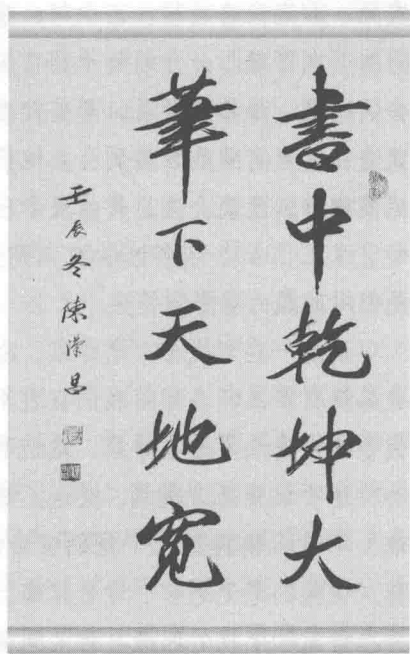 書中乾坤大
筆下天地寬
壬辰冬陳漢昌